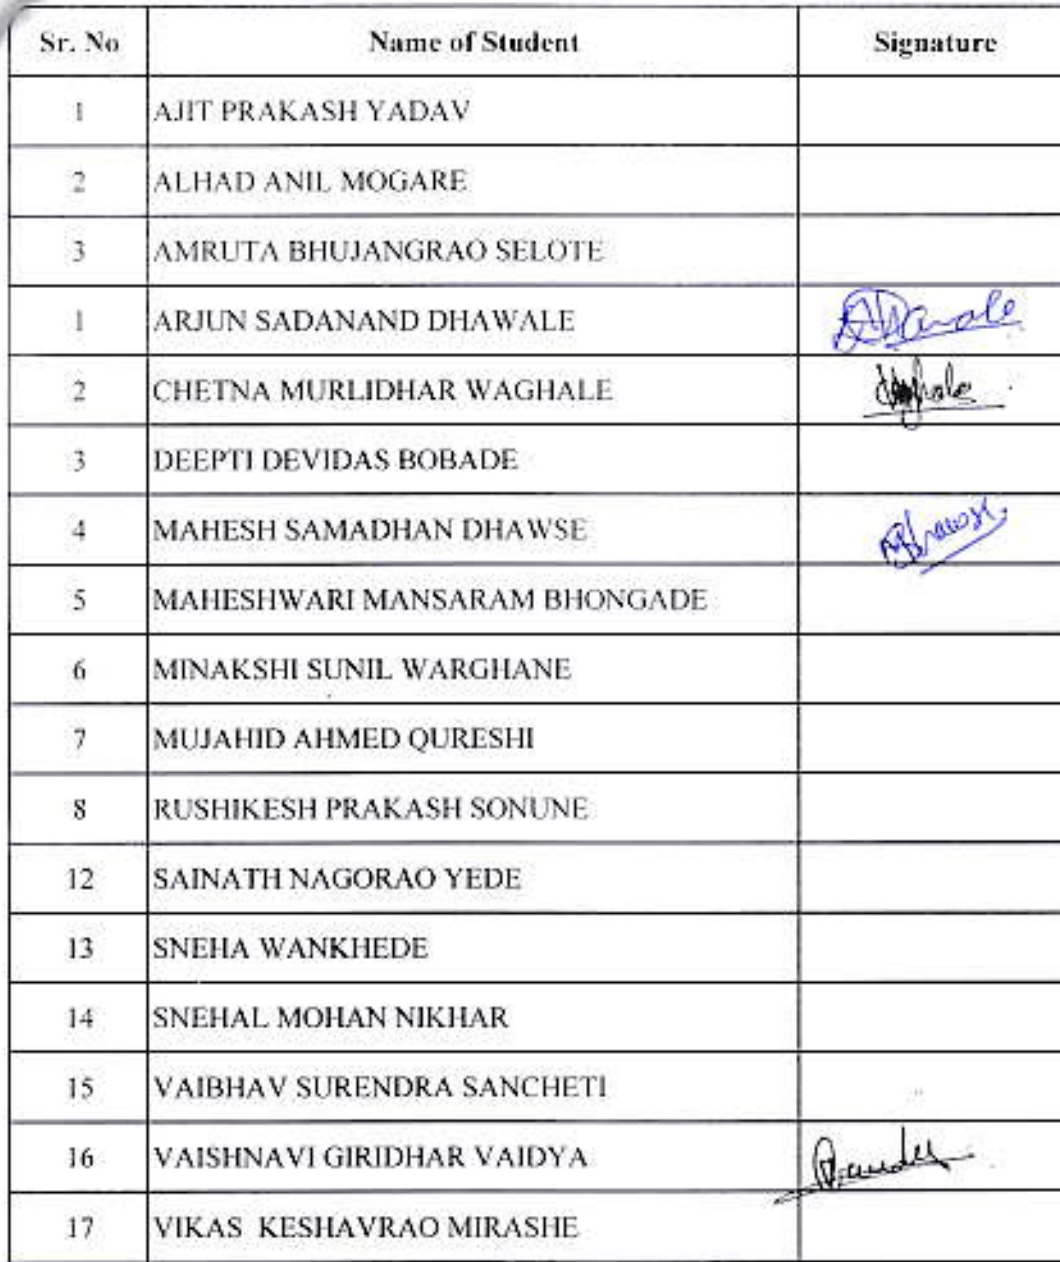 Sr. No Name of Student Signature
1 AJIT PRAKASH YADAV
2 ALHAD ANIL MOGARE
3 AMRUTA BHUJANGRAO SELOTE
1 ARJUN SADANAND DHAWALE
2 CHETNA MURLIDHAR WAGHALE
3 DEEPTI DEVIDAS BOBADE
4 MAHESH SAMADHAN DHAWSE
5 MAHESHWARI MANSARAM BHONGADE
6 MINAKSHI SUNIL WARGHANE
7 MUJAHID AHMED QURESHI
8 RUSHIKESH PRAKASH SONUNE
12 SAINATH NAGORAO YEDE
13 SNEHA WANKHEDE
14 SNEHAL MOHAN NIKHAR
15 VAIBHAV SURENDRA SANCHETI
16 VAISHNAVI GIRIDHAR VAIDYA
17 VIKAS KESHAVRAO MIRASHE